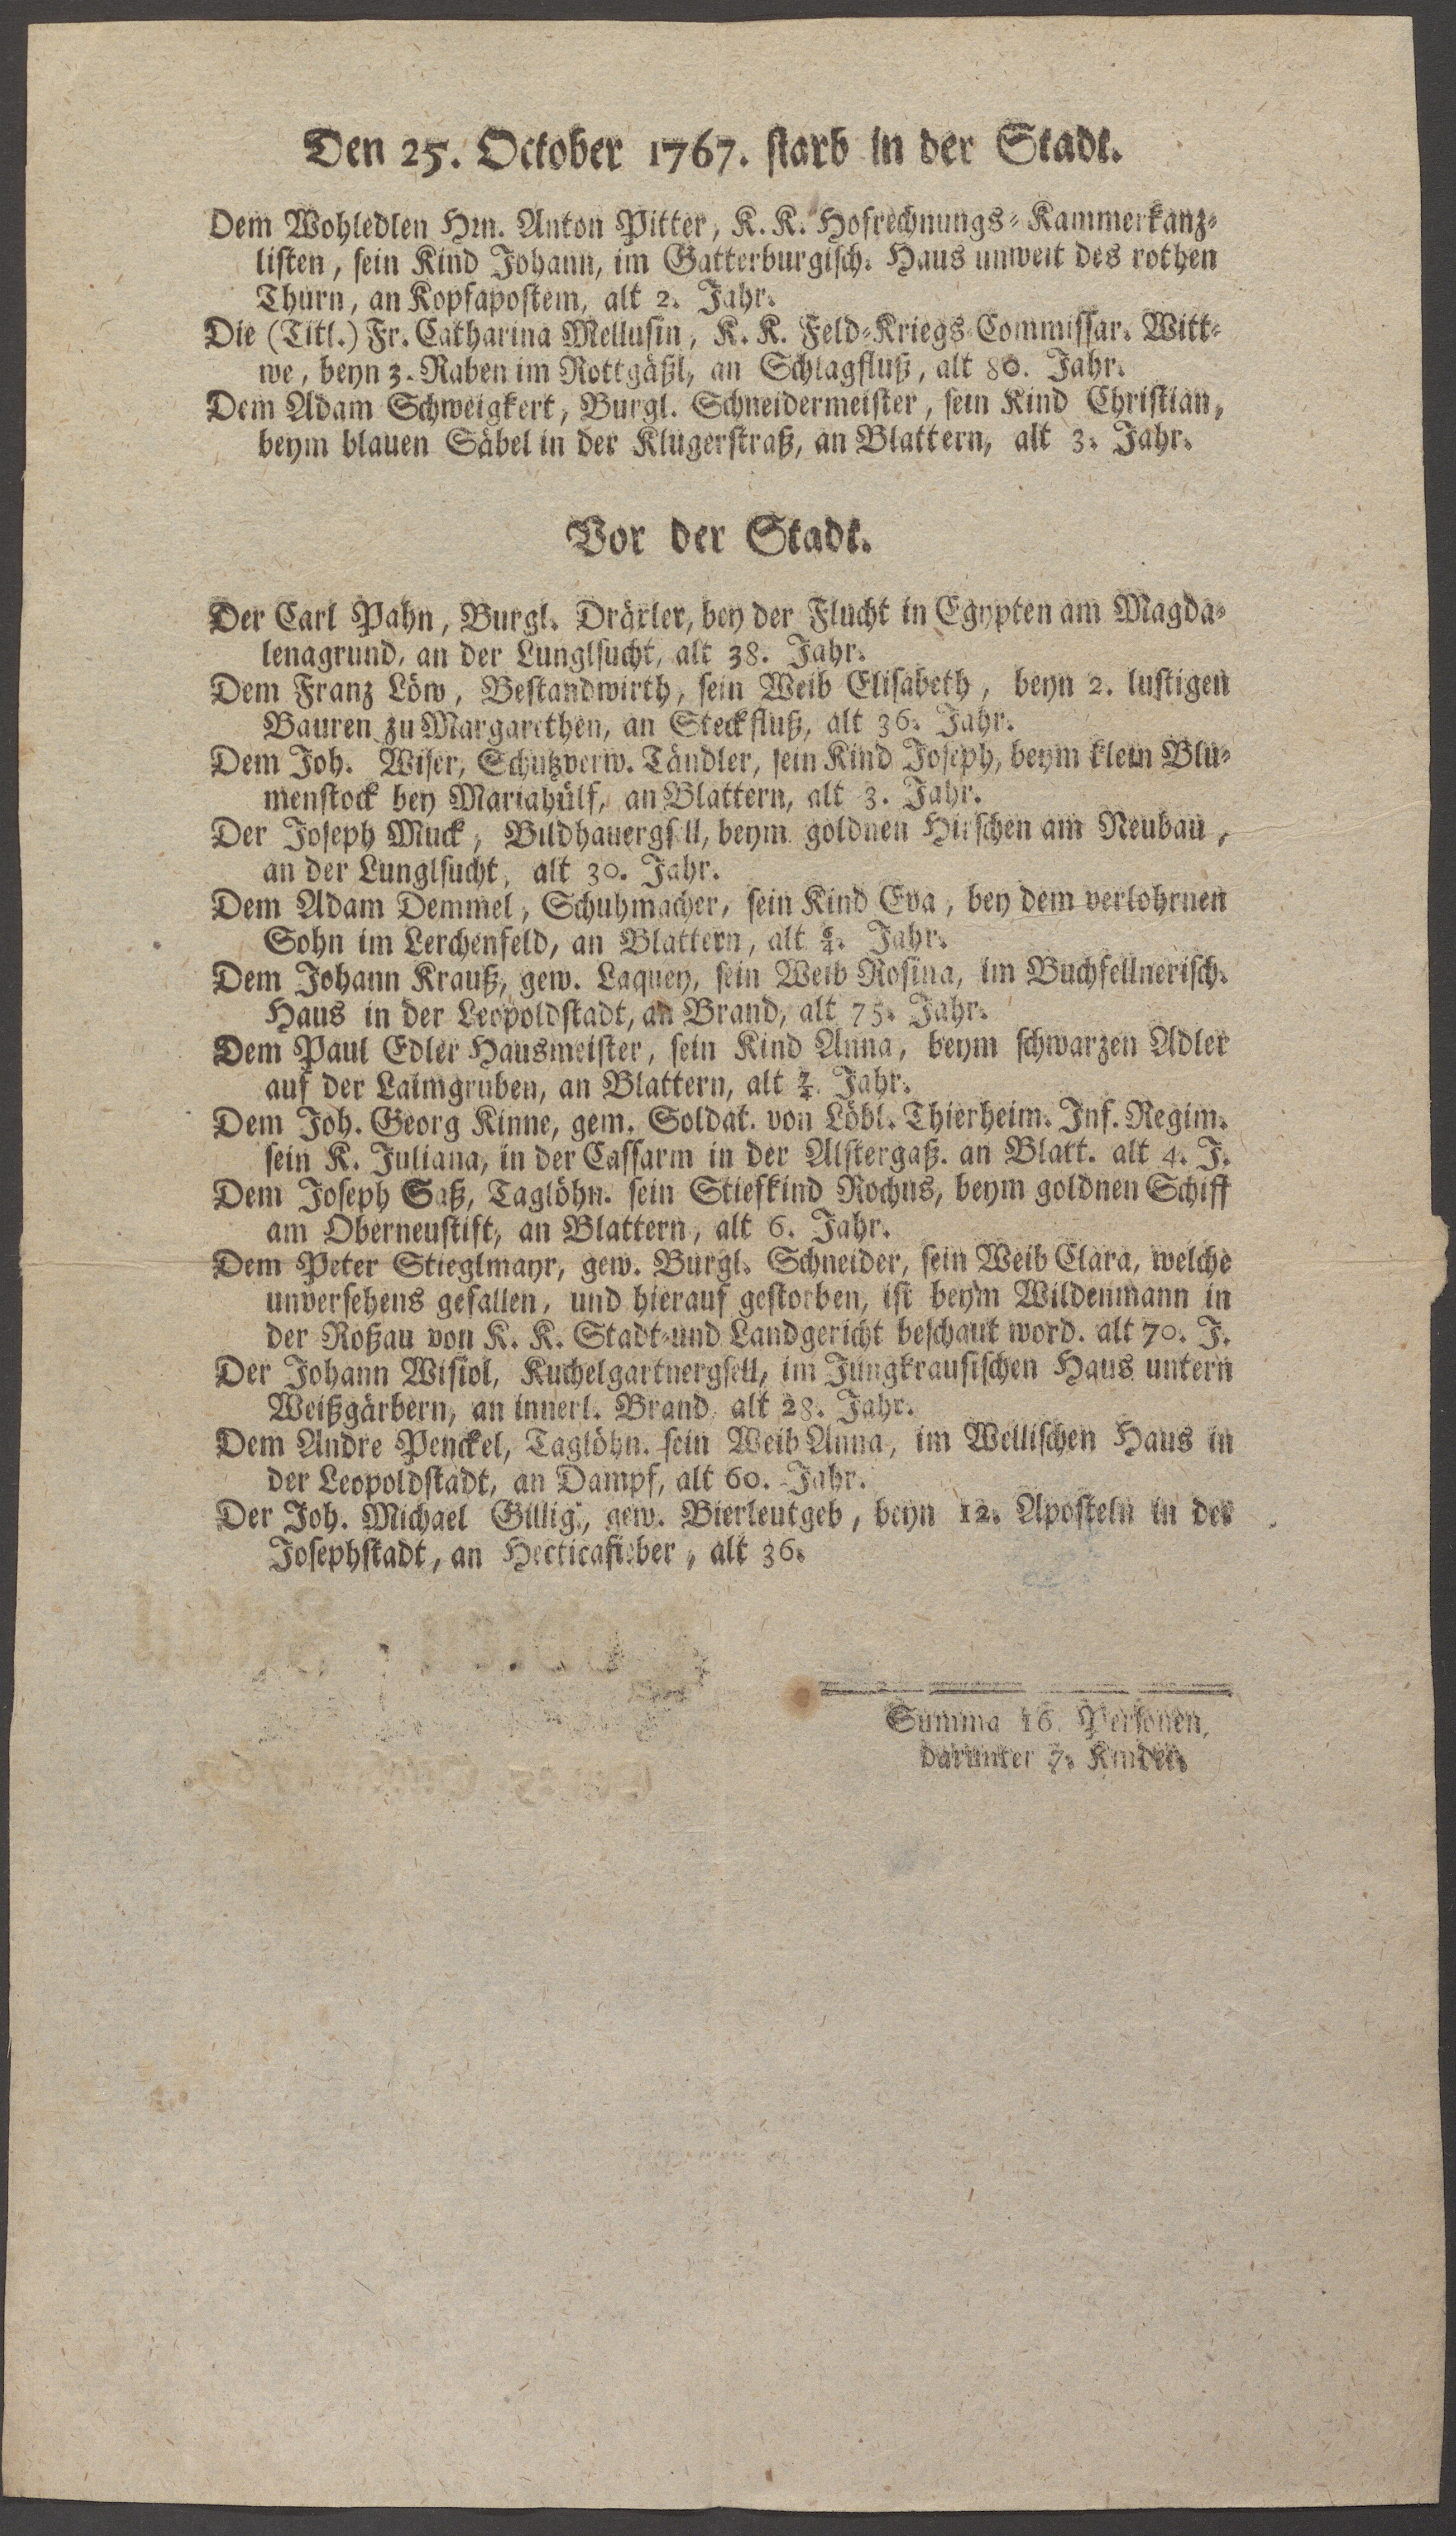 Den 25. October 1767. starb in der Stadt.
Dem Wohledlen Hrn. Anton Pitter, K. K. Hofrechnungs-Kammerkanz-
listen, sein Kind Johann, im Gatterburgisch. Haus unweit des rothen
Thurn, an Kopfapostem, alt 2. Jahr.
Die (Titl.) Fr. Catharina Mellusin, K. K. Feld-Kriegs-Commissar. Witt-
we, beyn 3. Raben im Rottgäßl, an Schlagfluß, alt 80. Jahr.
Dem Adam Schweigkert, Burgl. Schneidermeister, sein Kind Christian,
beym blauen Säbel in der Klugerstraß, an Blattern, alt 3. Jahr.
Vor der Stadt.
Der Carl Pahn, Burgl. Dräxler, bey der Flucht in Egypten am Magda-
lenagrund, an der Lunglsucht, alt 38. Jahr.
Dem Franz Löw, Bestandwirth, sein Weib Elisabeth, beyn 2. lustigen
Bauren zu Margarethen, an Steckfluß, alt 36. Jahr.
Dem Joh. Wiser, Schutzverw. Tändler, sein Kind Joseph, beym klein Blu-
menstock bey Mariahülf, an Blattern, alt 3. Jahr.
Der Joseph Muck, Bildhauergsell, beym goldnen Hirschen am Neubau,
an der Lunglsucht, alt 30. Jahr.
Dem Adam Demmel, Schuhmacher, sein Kind Eva, bey dem verlohrnen
Sohn im Lerchenfeld, an Blattern, alt Jahr.
Dem Johann Krauß, gew. Laquey, sein Weib Rosina, im Buchfellnerisch.
Haus in der Leopoldstadt, an Brand, alt 75. Jahr.
Dem Paul Edler Hausmeister, sein Kind Anna, beym schwarzen Adler
auf der Laimgruben, an Blattern, alt Jahr.
Dem Joh. Georg Kinne, gem. Soldat. von Löbl. Thierheim. Inf. Regim.
sein K. Juliana, in der Cassarm in der Alstergaß. an Blatt. alt 4. J.
Dem Joseph Saß, Taglöhn. sein Stiefkind Rochus, beym goldnen Schiff
am Oberneustift, an Blattern, alt 6. Jahr.
Dem Peter Stieglmayr, gew. Burgl. Schneider, sein Weib Clara, welche
unversehens gefallen, und hierauf gestorben, ist beym Wildenmann in
der Roßau von K. K. Stadt-und Landgericht beschaut word. alt 70. J.
Der Johann Wisiol, Kuchelgartnergsell, im Jungkrausischen Haus untern
Weißgärbern, an innerl. Brand alt 28. Jahr.
Dem Andre Penckel, Taglöhn. sein Weib Anna, im Wellischen Haus in
der Leopoldstadt, an Dampf, alt 60. Jahr.
Der Joh. Michael Gillig, gew. Bierleutgeb, beyn 12. Aposteln in der
Josephstadt, an Hecticafieber, alt 36.
Summa 16. Personen,
darunter 7. Kinder.